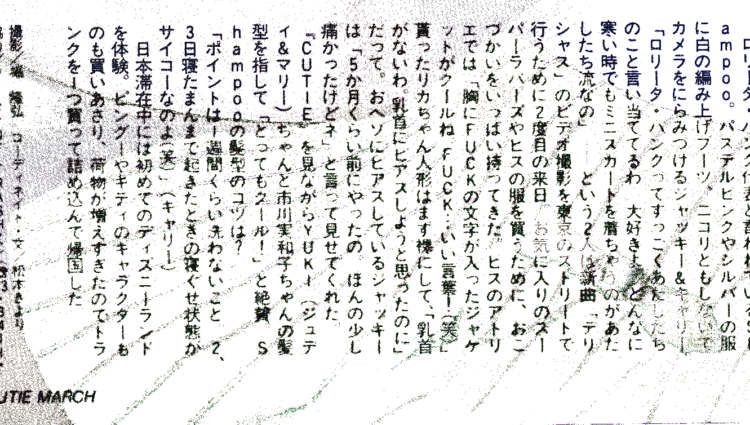 ロリータ・パンク
ampoo。パステルピンクやシルバーの服
に白の編み上げブーツ。ニコリともしないで
カメラをにらみつけるジャッキー＆キャリー
「ロリータ・パンクってすっごくあたしたち
のこと言い当ててるわ 大好きよ どんなに
寒い時でもミニスカートを着ちゃうのがあた
したち流なの」 という2人は新曲「デリ
シャス」のビデオ撮影を東京のストリートで
行うために2度目の来日 お気に入りのスー
パーラバーズやヒスの服を買うために、おこ
づかいをいっぱい持ってきた。ヒスのアトリ
エでは「胸にFUCKの文字が入ったジャケ
ットがクールね FUCK、いい言葉ー（笑）」
貰ったリカちゃん人形はまず裸にして、「乳首
がないわ。乳首にピアスしようと思ったのに」
だって。おヘソにピアスしているジャッキー
は「5か月くらい前にやったの。ほんの少し
痛かったけどネ」と言って見せてくれた
『CUTIE』を見ながらYUKI（ジュデ
ィ＆マリー）ちゃんと市川実和子ちゃんの髪
型を指して「とってもクール！」と絶賛 S
hampooの髪型のコツは？
「ポイントは1週間くらい洗わないこと 2、
3日寝たまんまで起きたときの寝ぐせ状態が
サイコーなのよ（笑）」（キャリー）
日本滞在中には初めてのディズニーランド
を体験。ピングーやキティのキャラクターも
のも買いあさり、荷物が増えすぎたのでトラ
ンクを1つ買って詰め込んで帰国した
撮影／ 隆弘 コーディネイト・文／松本きより
UTIE MARCH